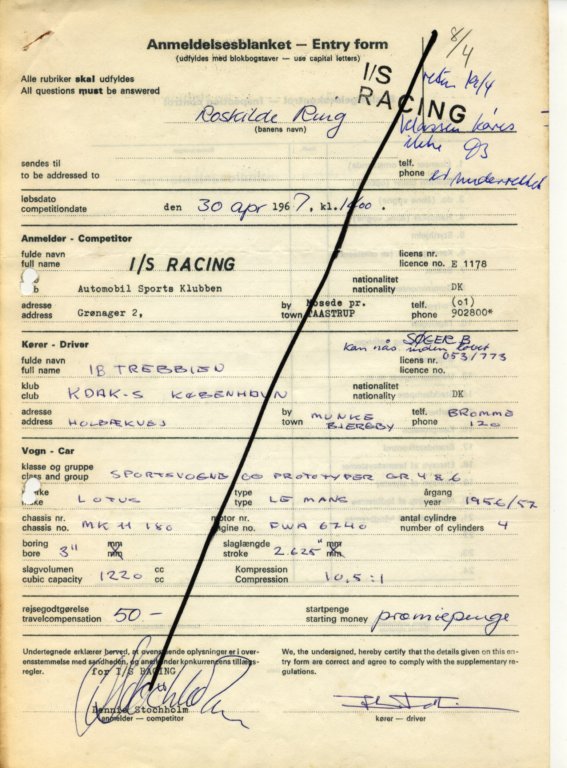 Anmeldelsesblanket — Entry form
(udfyldes med blokbogstaver — use capital letters)
8/4
Alle rubriker skal udfyldes
All questions must be answered
I/S
RACING
retur 12/4
Roskilde Ring
(banens navn)
klassen køres
ikke
sendes til
to be addressed to
telf.
phone
er underrettet
løbsdato
competitiondate
den 30 apr 1967, kl. 1400.
Anmelder - Competitor
fulde navn
full name
I/S RACING
licens nr.
licence no. E 1178
Automobil Sports Klubben
nationalitet
nationality DK
adresse
address
Grønager 2,
by
town
Mosede pr.
TAASTRUP
telf.
phone
(01)
902800*
Kører - Driver
SØGER B
kan nås inden løbet
fulde navn
full name
IB TREBBIEN
licens nr.
licence no.
053/773
klub
club
KDAK-S KØBENHAVN
nationalitet
nationality DK
adresse
address
HOLBÆKVEJ
by
town
MUNKE
BJERGBY
telf.
phone
BROMME
120
Vogn - Car
klasse og gruppe
class and group
SPORTSVOGNE OG PROTOTYPER GR 4 & 6
LOTUS
type
type
LE MANS
årgang
year
1956/57
chassis nr.
chassis no.
MK 11 180
motor nr.
engine no.
FWA 6740
antal cylindre
number of cylinders
4
boring
bore
3"
mm
mm
slaglængde
stroke
2.625"
mm
mm
slagvolumen
cubic capacity
1220 cc
cc
Kompression
Compression
10,5:1
rejsegodtgørelse
travelcompensation
50 —
startpenge
starting money
præmiepenge
Undertegnede erklærer herved, at ovenstående oplysninger er i over-
ensstemmelse med sandheden, og anerkender konkurrencens tillægs-
regler.
We, the undersigned, hereby certify that the details given on this en-
try form are correct and agree to comply with the supplementary re-
gulations.
for I/S RACING
Dennis Stochholm
anmelder — competitor
kører — driver